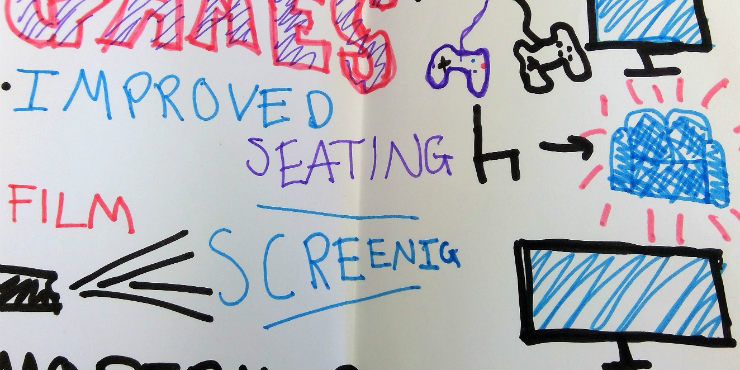 GAMES
• IMPROVED
SEATING
FILM
SCREENIG